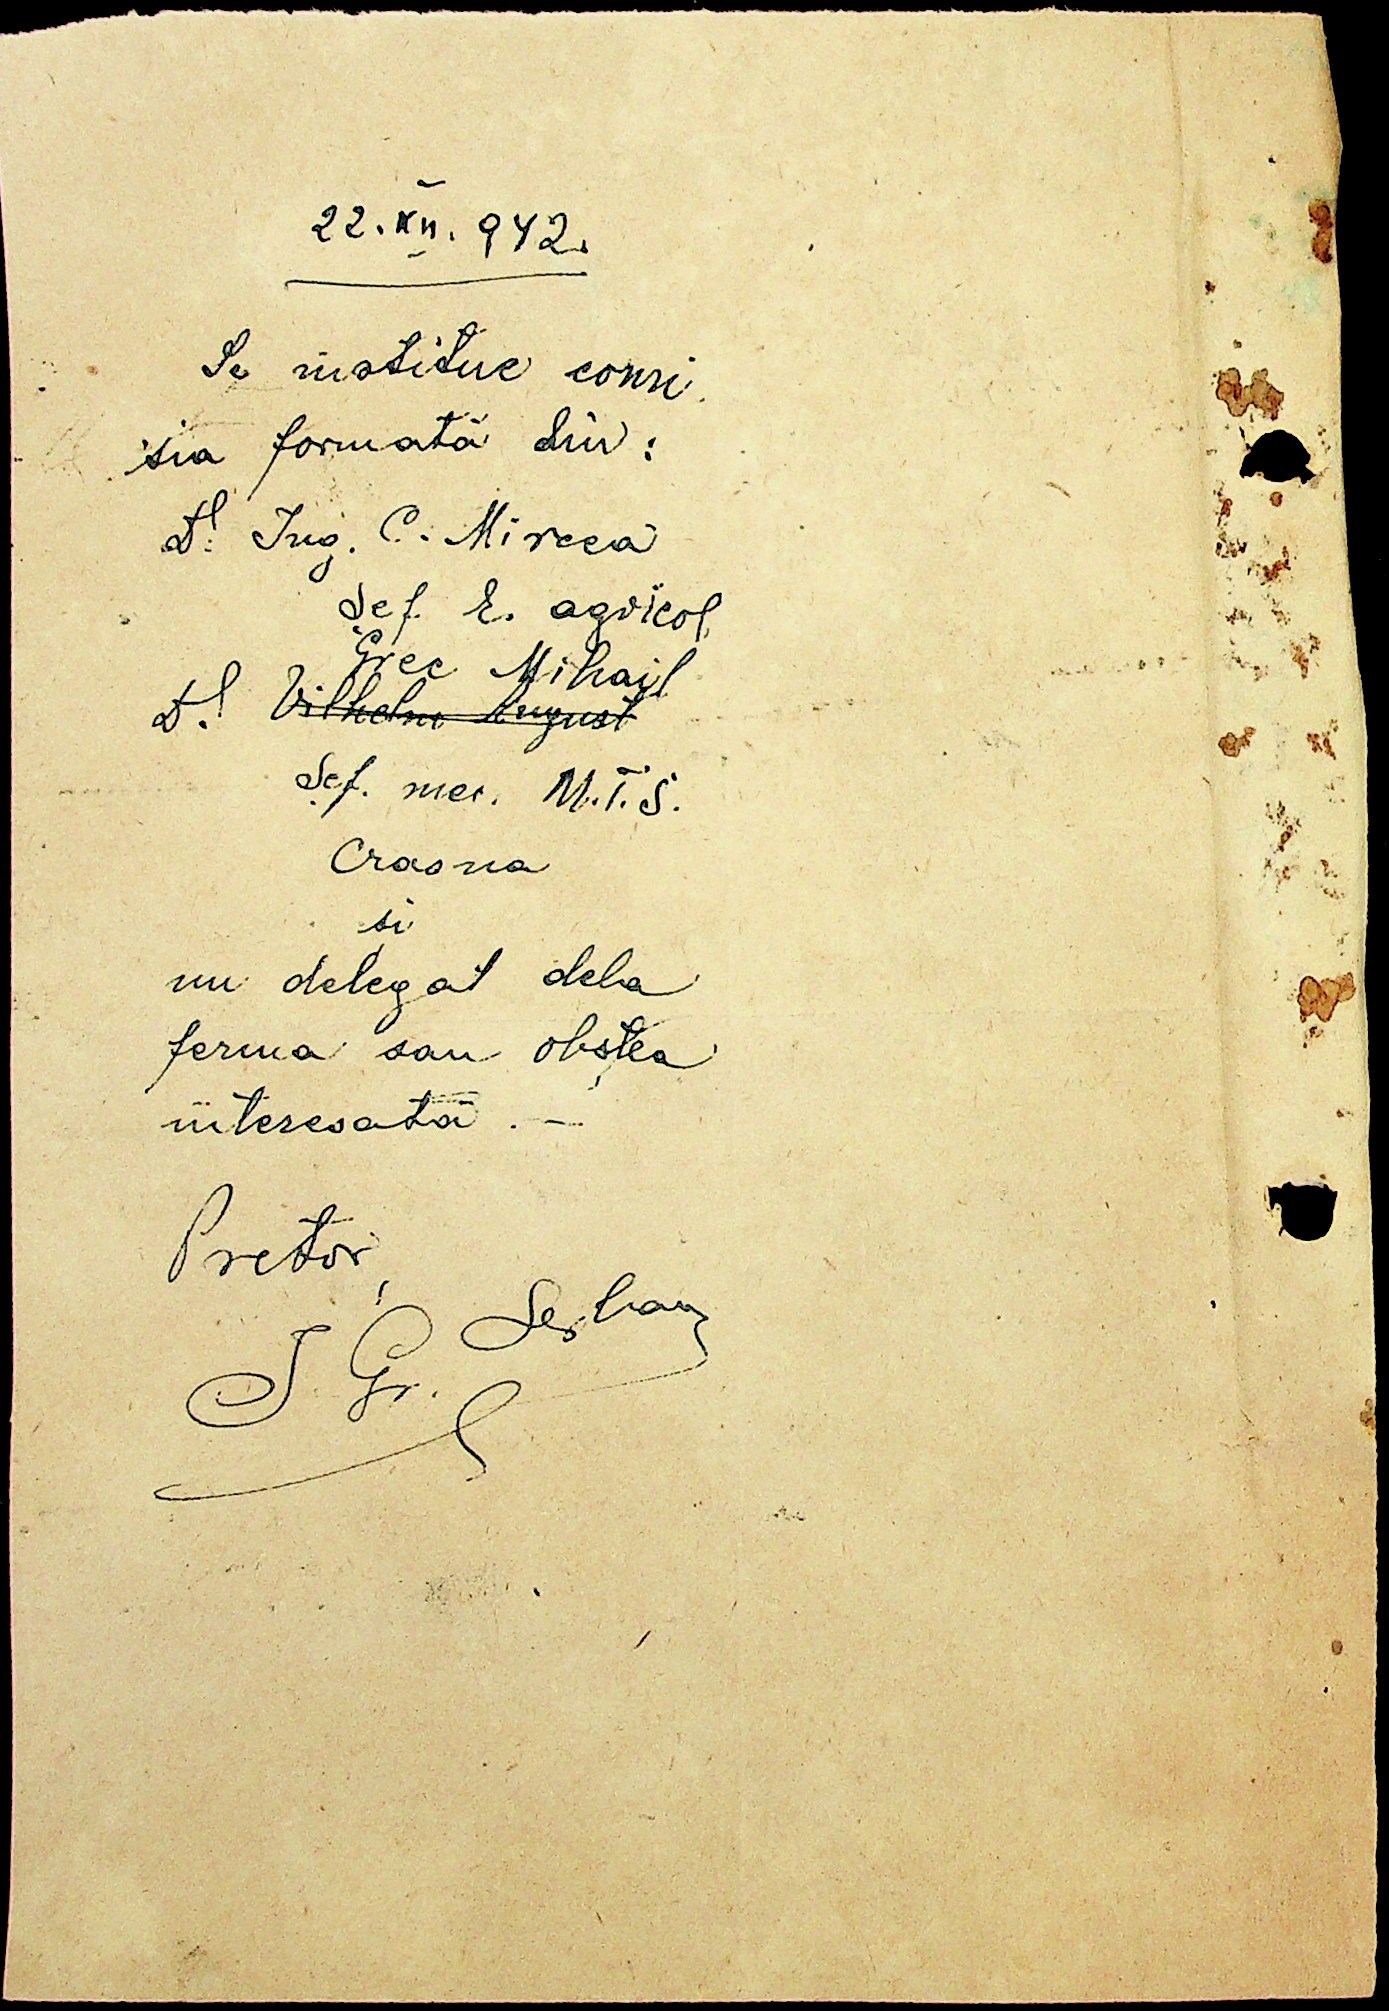 22.XII.942.
Se institue comi
sia formată din:
Dl. Ing. C. Mircea
Șef. E. agricol
Grec Mihail
Dl. Vilhelm August
Șef. mec. M.T.S.
Crasna
și
un delegat dela
ferma sau obștea
interesată.-
Pretor,
I Gr. Șerban